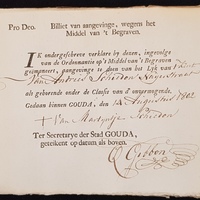 Pro Deo. Billiet van aangevinge, wegens het
Middel van 't Begraven.
IK ondergeschreve verklare by dezen, ingevolge
van de Ordonnantie op 't Middel van 't Begraven
geëmaneert, aangevinge te doen van het Lyk van
Van
als gehoorende onder de Clause van d' onvermogende.
Gedaan binnen GOUDA, den 14 Augustus 1802
Van Martyntje Schiedon
Ter Secretarye der Stad GOUDA,
geteikent op datum als boven.